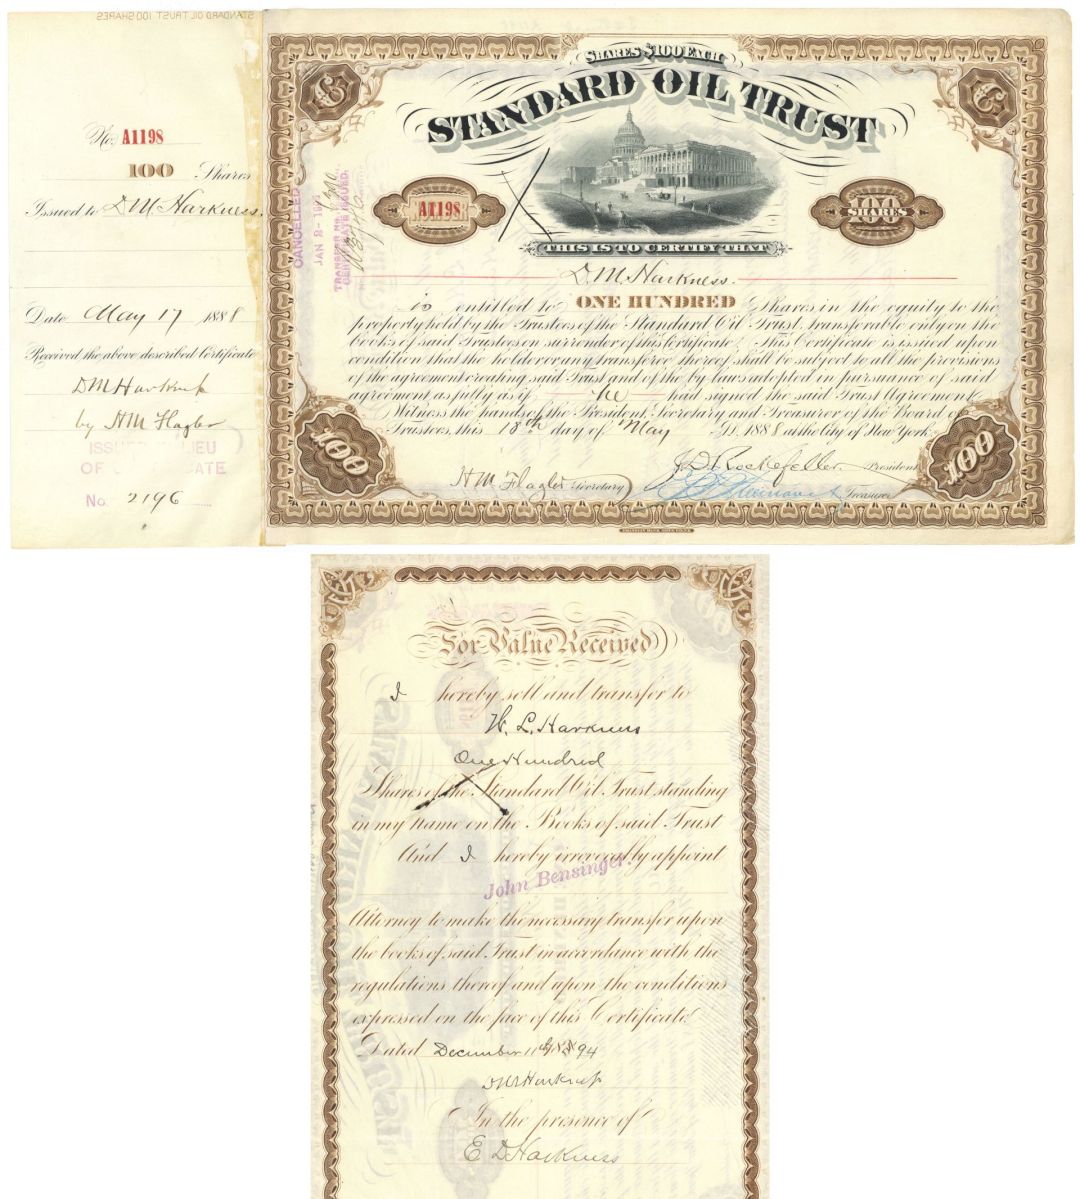 STANDARD OIL TRUST 100 SHARES
No. A1198
100 Shares
Issued to D M Harkness.
Date May 17 1888
Received the above described Certificate
D M Harkness
by H M Flagler
ISSUED IN LIEU
OF CERTIFICATE
No. 2196
CANCELLED
JAN 2 -
TRANSFER NO.
CERTIFICATE ISSUED.
SHARES $100 EACH
STANDARD OIL TRUST
NUMBER A1198
100 SHARES 100
THIS IS TO CERTIFY THAT
D. M. Harkness.
is entitled to ONE HUNDRED Shares in the equity to the
property held by the Trustees of the Standard Oil Trust, transferable only on the
books of said Trustees on surrender of this Certificate. This Certificate is issued upon
condition that the holder or any transferee thereof shall be subject to all the provisions
of the agreement creating said Trust and of the by-laws adopted in pursuance of said
agreement as fully as if he had signed the said Trust Agreement.
Witness the hands of the President, Secretary and Treasurer of the Board of
Trustees, this 18th day of May A.D. 1888 at the City of New York.
100
100
J D Rockefeller. President
H M Flagler Secretary
Treasurer
AMERICAN BANK NOTE CO. N.Y.
For Value Received
I hereby sell and transfer to
W. L. Harkness
One Hundred
Shares of the Standard Oil Trust standing
in my name on the Books of said Trust
And I hereby irrevocably appoint
John Bensinger.
Attorney to make the necessary transfer upon
the books of said Trust in accordance with the
regulations thereof and upon the conditions
expressed on the face of this Certificate
Dated December 11th 1894
D M Harkness
In the presence of
E D Harkness